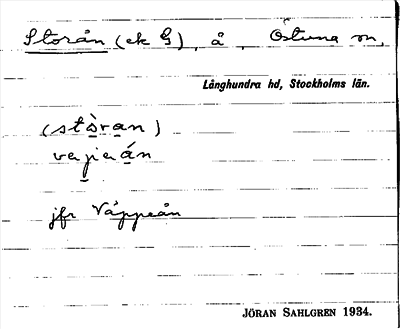 Storån (ek G), å, Östuna sn,
Långhundra hd, Stockholms län.
(stòran)
vepeán
jfr Väppeån
JÖRAN SAHLGREN 1934.